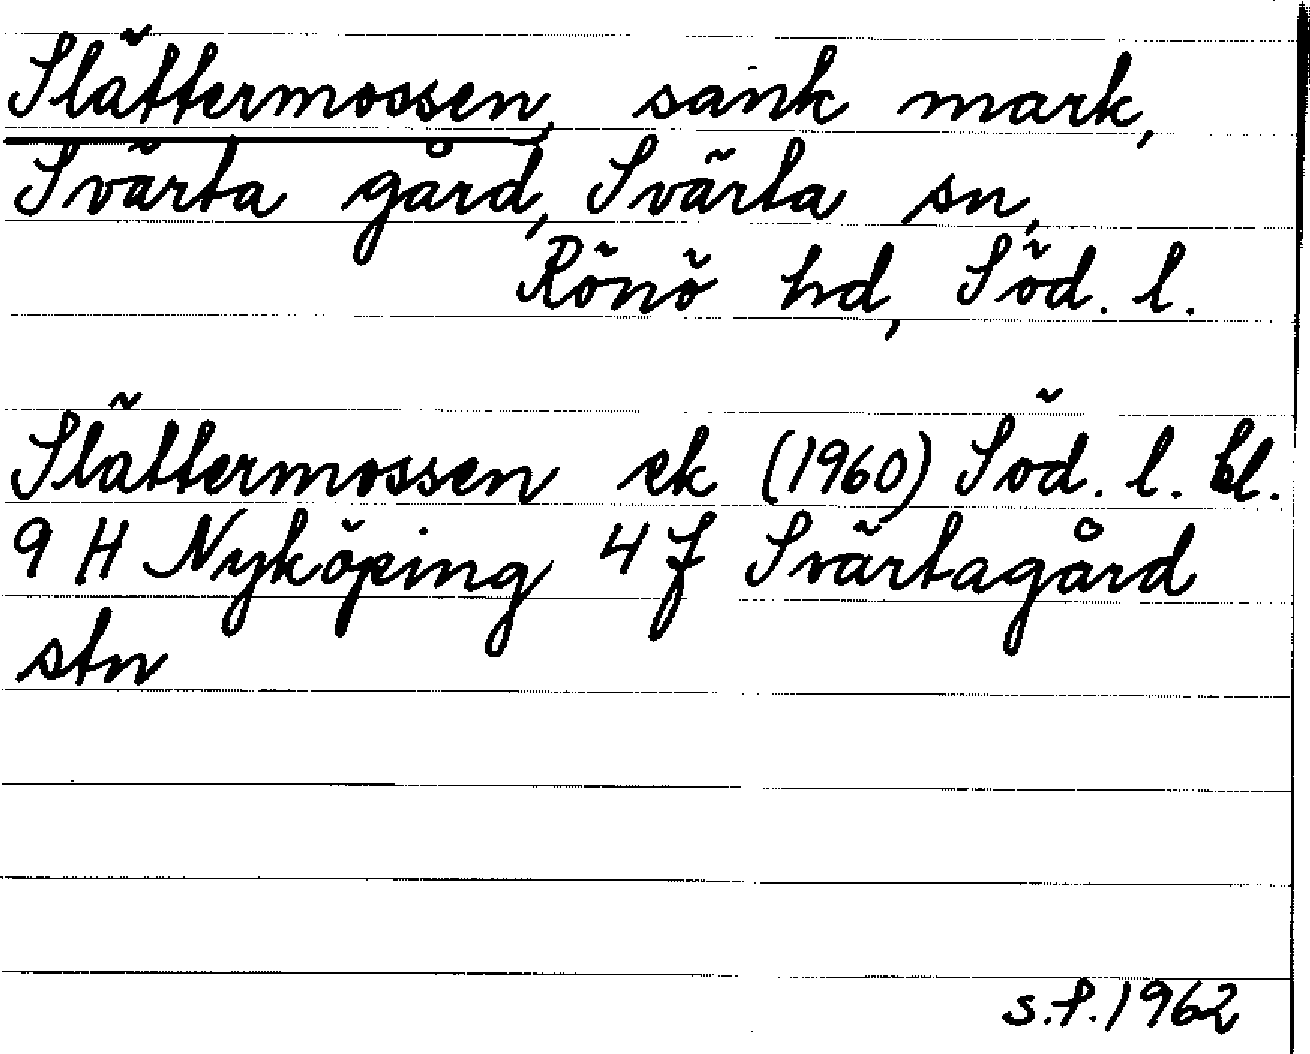 Slättermossen, sank mark,
Svärta gård, Svärta sn,
Rönö hd, Söd. l.
Slättermossen ek (1960) Söd. l. bl.
9 H Nyköping 4 f Svärtagård
stn
s.f. 1962